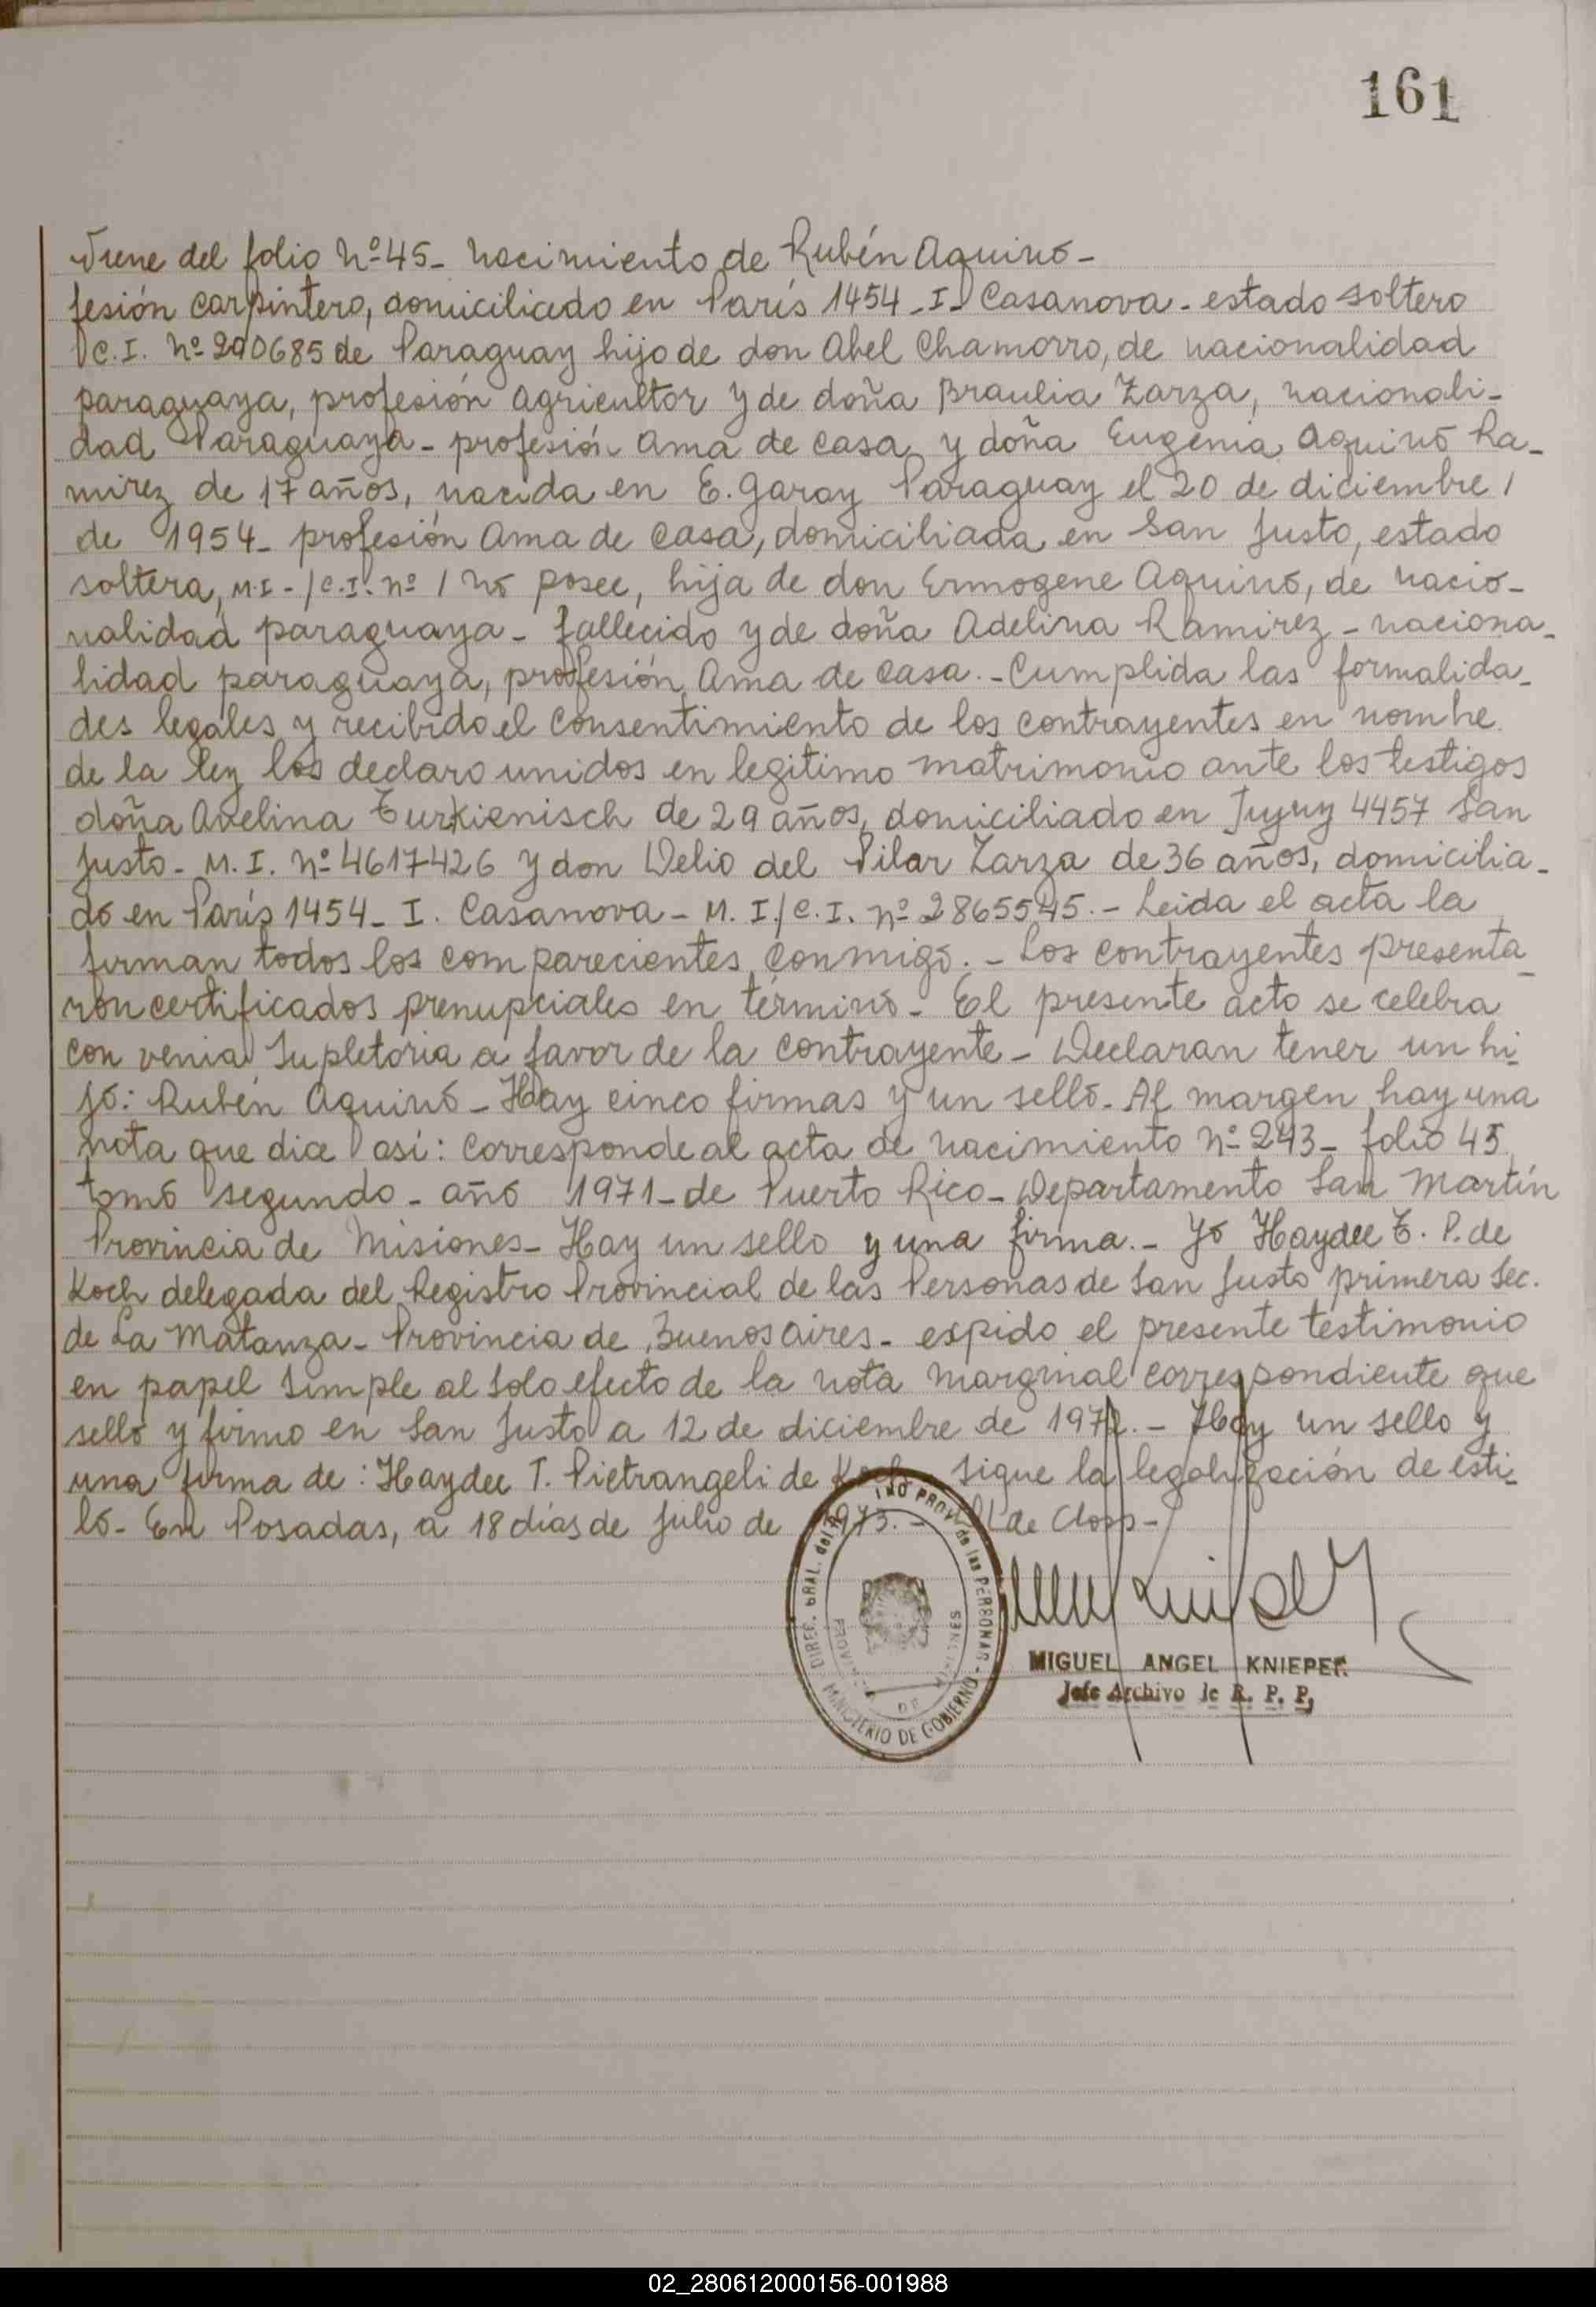 161
Viene del folio Nº 45_ Nacimiento de Rubén Aquino_
fesión carpintero, domiciliado en París 1454_I_ Casanova_ estado soltero
C.I. Nº 290685 de Paraguay hijo de don Abel Chamorro, de nacionalidad
paraguaya, profesión agricultor y de doña Braulia Zarza, nacionali_
dad Paraguaya_ profesión Ama de casa y doña Eugenia Aquino Ra_
mirez de 17 años, nacida en E. Garay Paraguay el 20 de diciembre /
de 1954_ profesión Ama de casa, domiciliada en San Justo, estado
soltera, M.I-/C.I. nº / no posee, hija de don Ermogene Aquino, de nacio_
nalidad paraguaya_ fallecido y de doña Adelina Ramirez_ naciona_
lidad paraguaya, profesión Ama de casa._ Cumplida las formalida_
des legales y recibido el consentimiento de los contrayentes en nombe
de la ley los declaro unidos en legitimo matrimonio ante los testigos
doña Avelina Turkienisch de 29 años, domiciliado en Jujuy 4457 San
Justo_ M.I. nº 4617426 y don Delio del Pilar Zarza de 36 años, domicilia_
do en París 1454_ I. Casanova_ M.I./C.I. nº 2865545._ Leida el acta la
firman todos los comparecientes conmigo._ Los contrayentes presenta_
ron certificados prenupciales en término_ El presente acto se celebra
con venia Supletoria a favor de la contrayente_ Declaran tener un hi_
jo: Rubén Aquino_ Hay cinco firmas y un sello_ Al margen hay una
nota que dice así: Corresponde al acta de nacimiento nº 243_ folio 45
tomo segundo_ año 1971_ de Puerto Rico_ Departamento San Martín
Provincia de Misiones_ Hay un sello y una firma._ Yo Haydee T. P. de
Koch delegada del Registro Provincial de las Personas de San Justo primera Sec.
de La Matanza_ Provincia de Buenos Aires_ expido el presente testimonio
en papel simple al solo efecto de la nota marginal correspondiente que
sello y firmo en San Justo a 12 de diciembre de 1972._ Hay un sello y
una firma de: Haydee T. Pietrangeli de Koch_ Sigue la legalización de esti_
lo_ En Posadas, a 18 días de Julio de 1973._ de Closs_
DIREC. GRAL. del PROV. de las PERSONAS
PROVINCIA DE MISIONES
MINISTERIO DE GOBIERNO
MIGUEL ANGEL KNIEPER
Jefe Archivo de R. P. P.
02_280612000156-001988